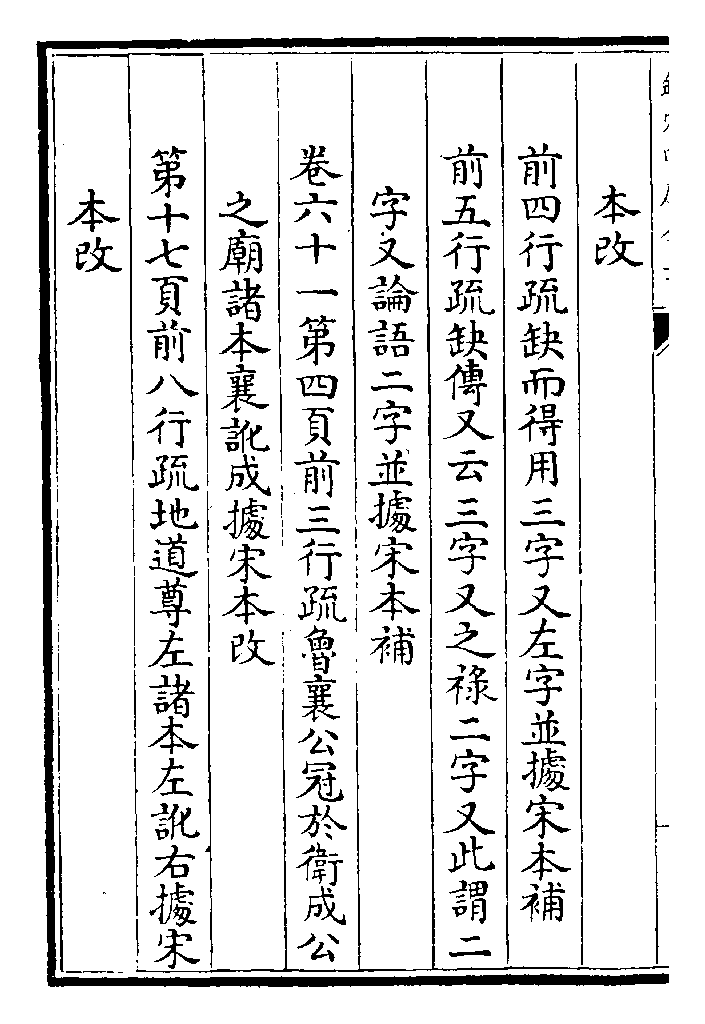 本改
前四行疏缺而得用三字又左字並據宋本補
前五行疏缺傳又云三字又之祿二字又此謂二
字又論語二字並據宋本補
卷六十一第四頁前三行疏魯襄公冠於衛成公
之廟諸本襄訛成據宋本改
第十七頁前八行疏地道尊左諸本左訛右據宋
本改